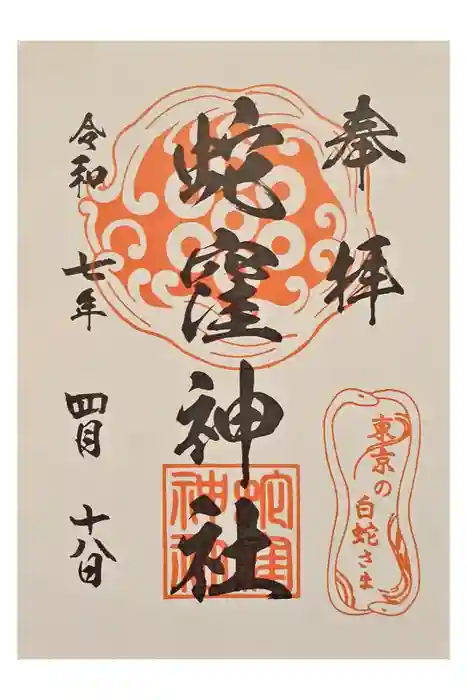 奉拝
蛇窪神社
蛇窪神社
東京の
白蛇さま
令和七年四月十八日